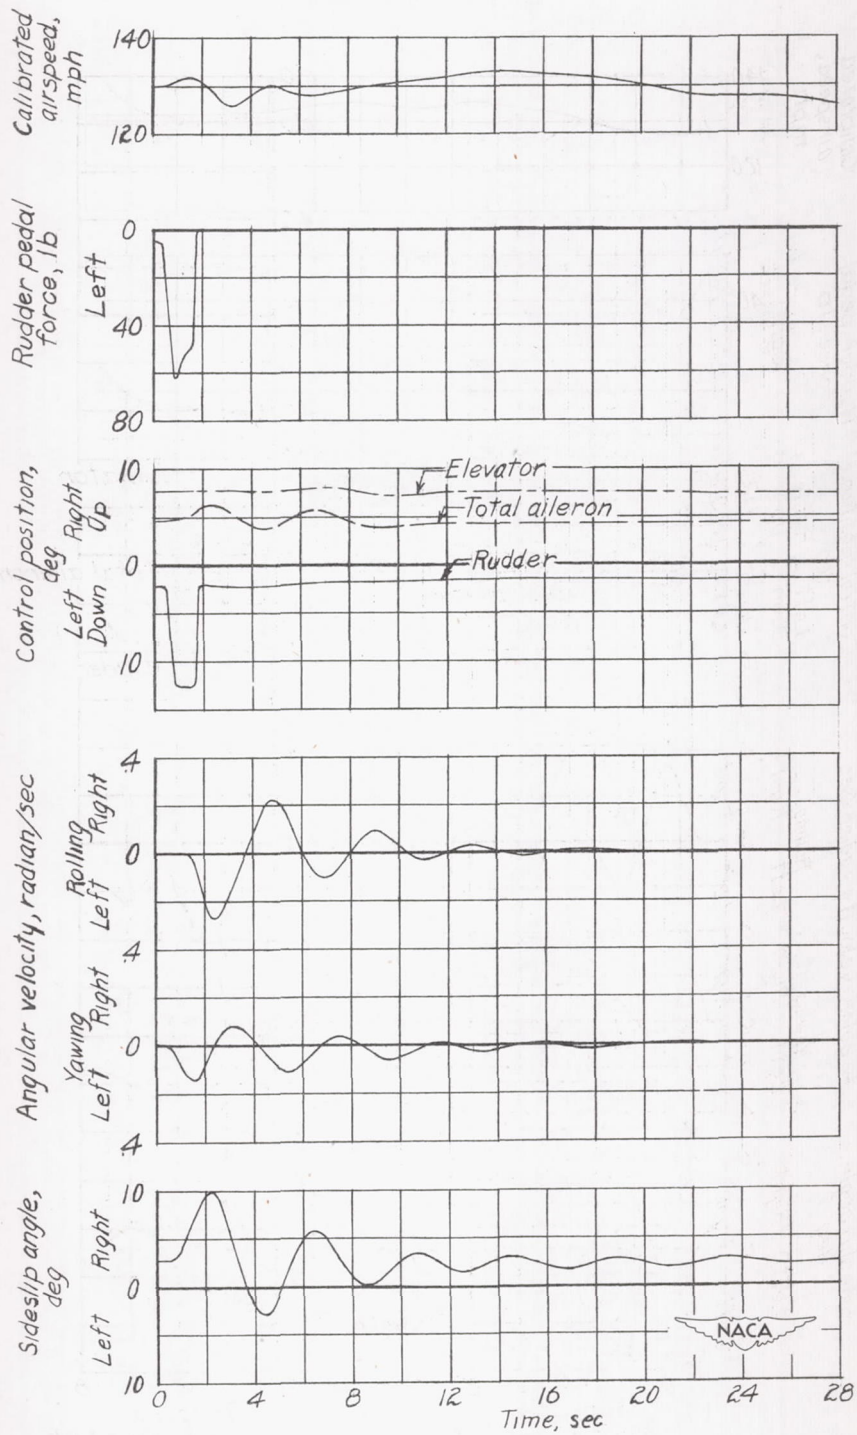 Calibrated
airspeed,
mph
140
120
Rudder pedal
force, lb
Left
0
40
80
Control position,
deg
Left Right
Down Up
10
0
10
Elevator
Total aileron
Rudder
Angular velocity, radian/sec
Rolling
Left Right
4
0
.4
Yawing
Left Right
.0
.4
Sideslip angle,
deg
Left Right
10
0
10
NACA
0 4 8 12 16 20 24 28
Time, sec